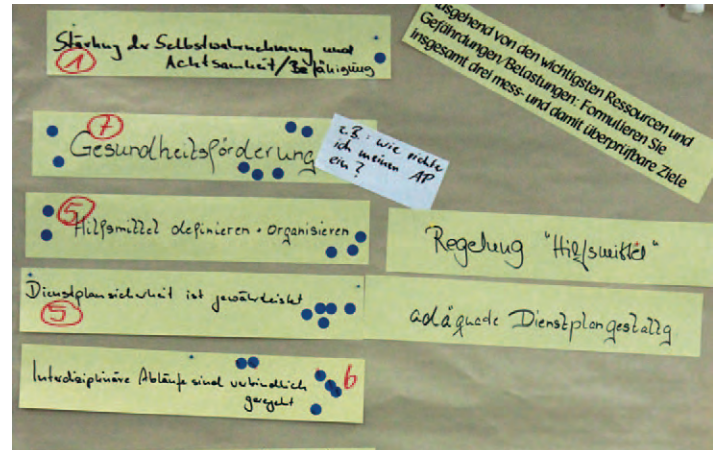 Stärkung der Selbstwahrnehmung und
Achtsamheit/Befähigung
1
7
Gesundheitsförderung
z.B.: wie richte
ich meinen AP
ein?
5
Hilfsmittel definieren + organisieren
Dienstplansicherheit ist gewährleistet
5
Interdisziplinäre Abläufe sind verbindlich
geregelt
6
ausgehend von den wichtigsten Ressourcen und
Gefährdungen/Belastungen: Formulieren Sie
insgesamt drei mess- und damit überprüfbare Ziele
Regelung "Hilfsmittel"
adäquade Dienstplangestaltg